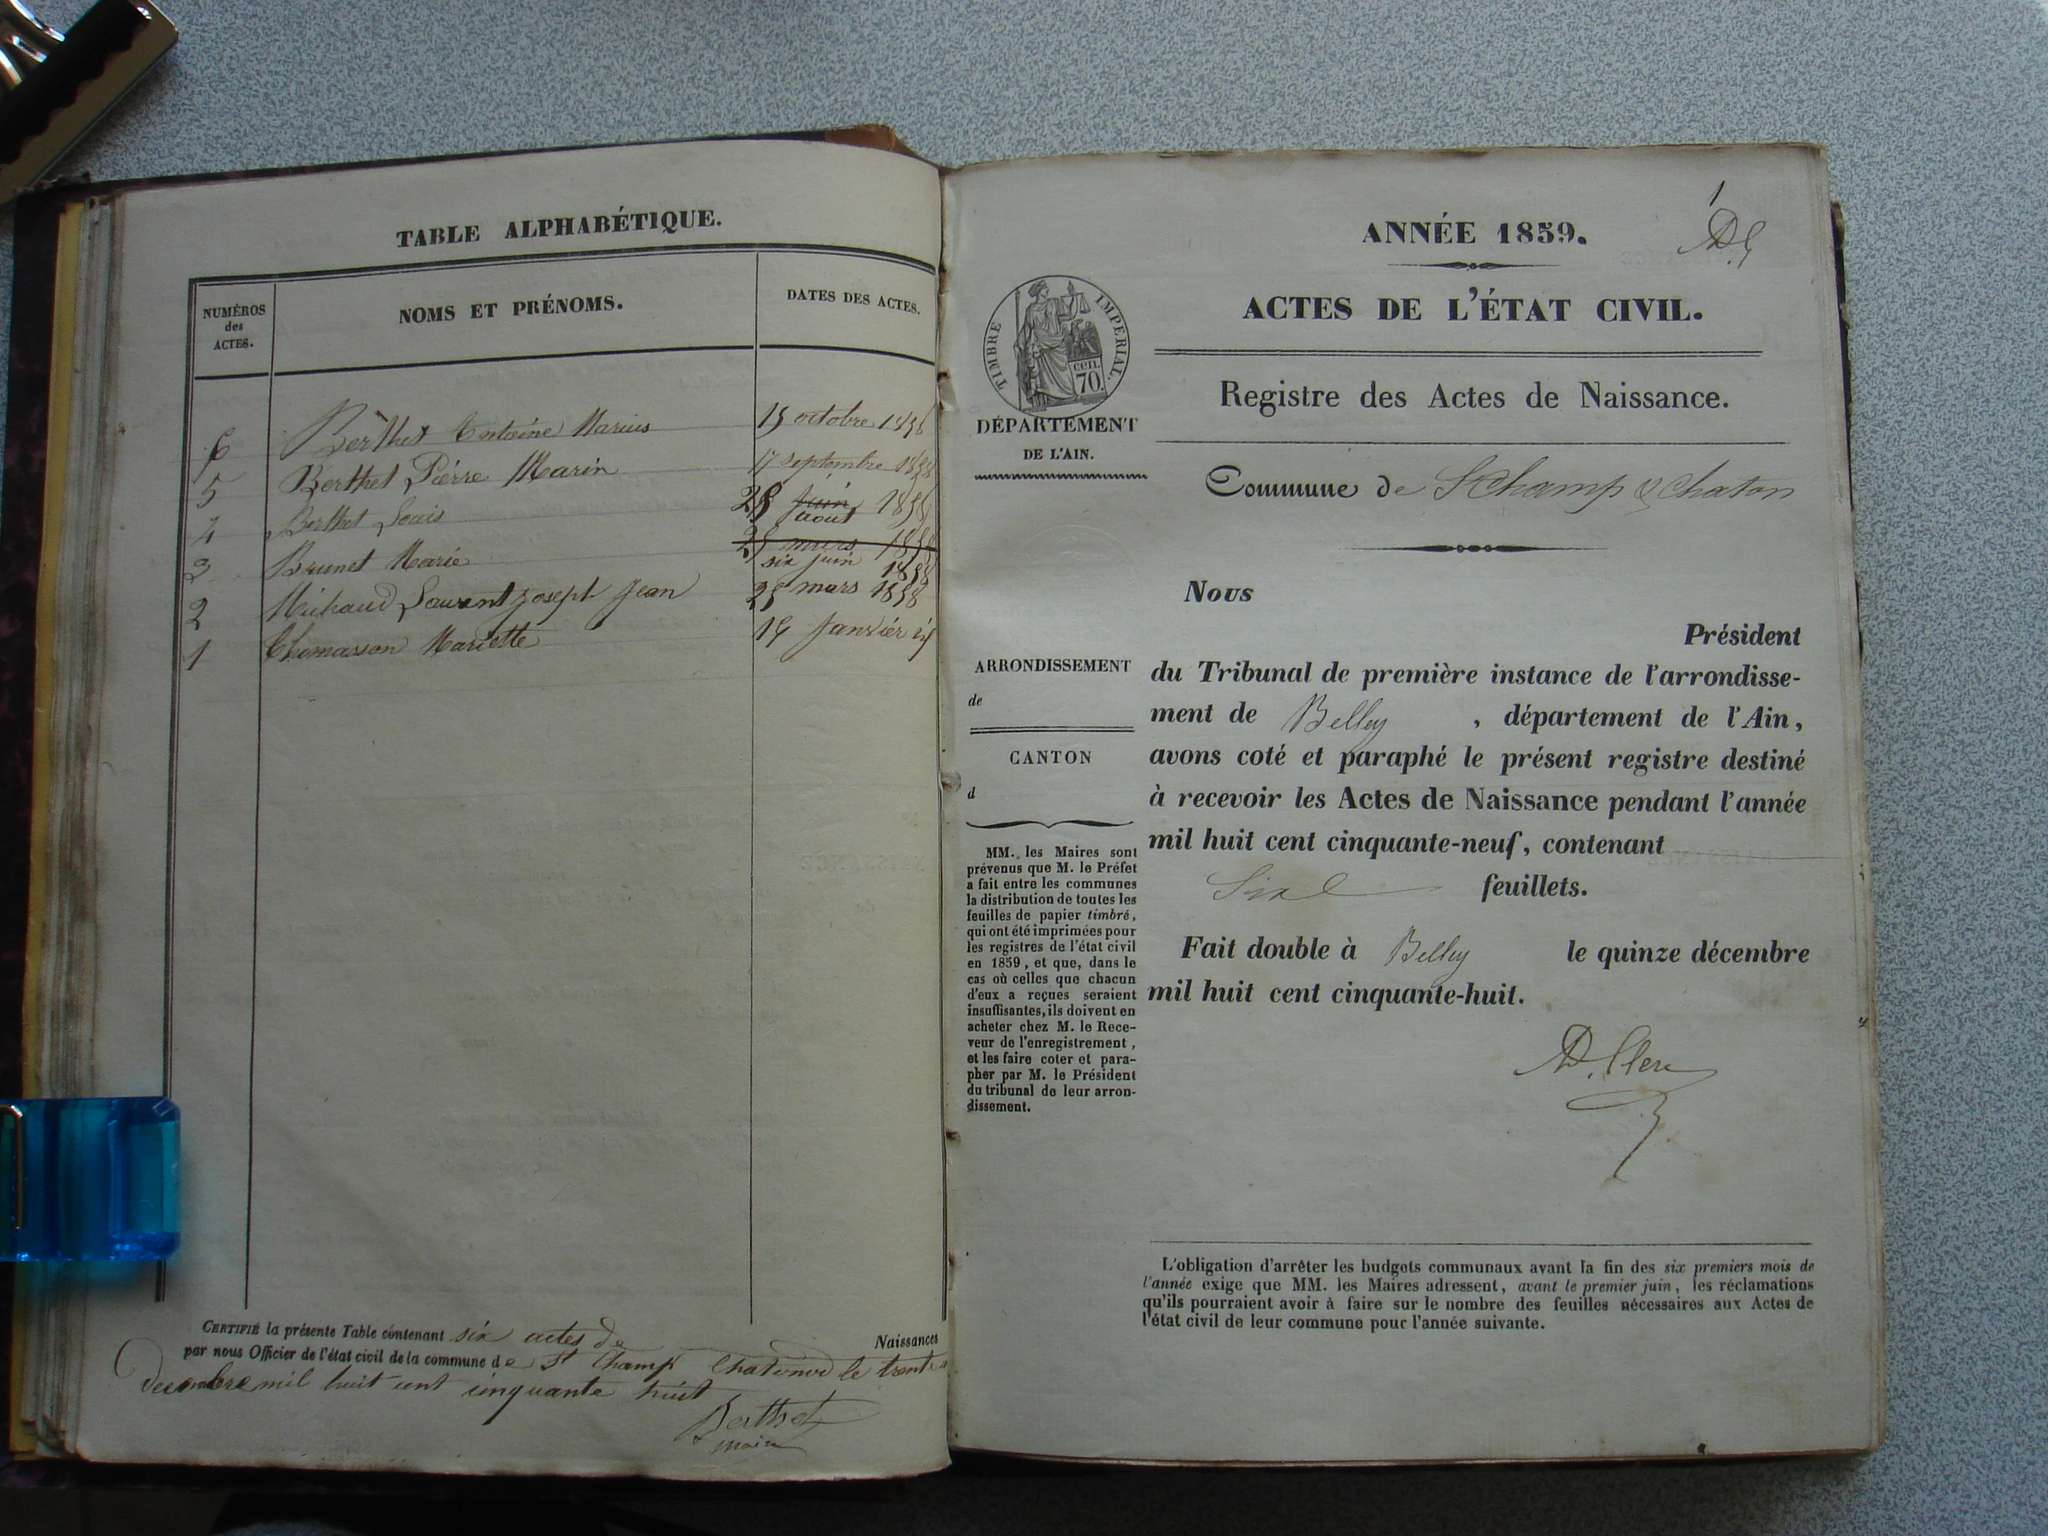 TABLE ALPHABÉTIQUE.
NUMÉROS
des
ACTES.
NOMS ET PRÉNOMS.
DATES DES ACTES.
6 Berthet Antoine Marius 15 octobre 1858
5 Berthet Pierre Marin 17 septembre 1858
4 Berthet Louis 28 juin 1858
aout
3 Brunet Marie 25 mars 1858
six juin 1858
2 Michaud Laurent Joseph Jean 25 mars 1858
1 Thomasson Mariette Janvier
CERTIFIÉ la présente Table contenant six actes de Naissances
par nous Officier de l'état civil de la commune de St Champ Chatonod le trente
decembre mil huit cent cinquante huit
Berthet
maire
1
ANNÉE 1859.
ACTES DE L'ÉTAT CIVIL.
TIMBRE IMPERIAL.
CEN.
70.
Registre des Actes de Naissance.
DÉPARTEMENT
DE L'AIN.
Commune de St Champ & Chaton
Nous
Président
du Tribunal de première instance de l'arrondisse-
ment de Belley , département de l'Ain,
avons coté et paraphé le présent registre destiné
à recevoir les Actes de Naissance pendant l'année
mil huit cent cinquante-neuf, contenant
Six feuillets.
Fait double à Belley le quinze décembre
mil huit cent cinquante-huit.
ARRONDISSEMENT
de
CANTON
d
MM. les Maires sont
prévenus que M. le Préfet
a fait entre les communes
la distribution de toutes les
feuilles de papier timbré,
qui ont été imprimées pour
les registres de l'état civil
en 1859, et que, dans le
cas où celles que chacun
d'eux a reçues seraient
insuffisantes, ils doivent en
acheter chez M. le Rece-
veur de l'enregistrement,
et les faire coter et para-
pher par M. le Président
du tribunal de leur arron-
dissement.
L'obligation d'arrêter les budgets communaux avant la fin des six premiers mois de
l'année exige que MM. les Maires adressent, avant le premier juin, les réclamations
qu'ils pourraient avoir à faire sur le nombre des feuilles nécessaires aux Actes de
l'état civil de leur commune pour l'année suivante.